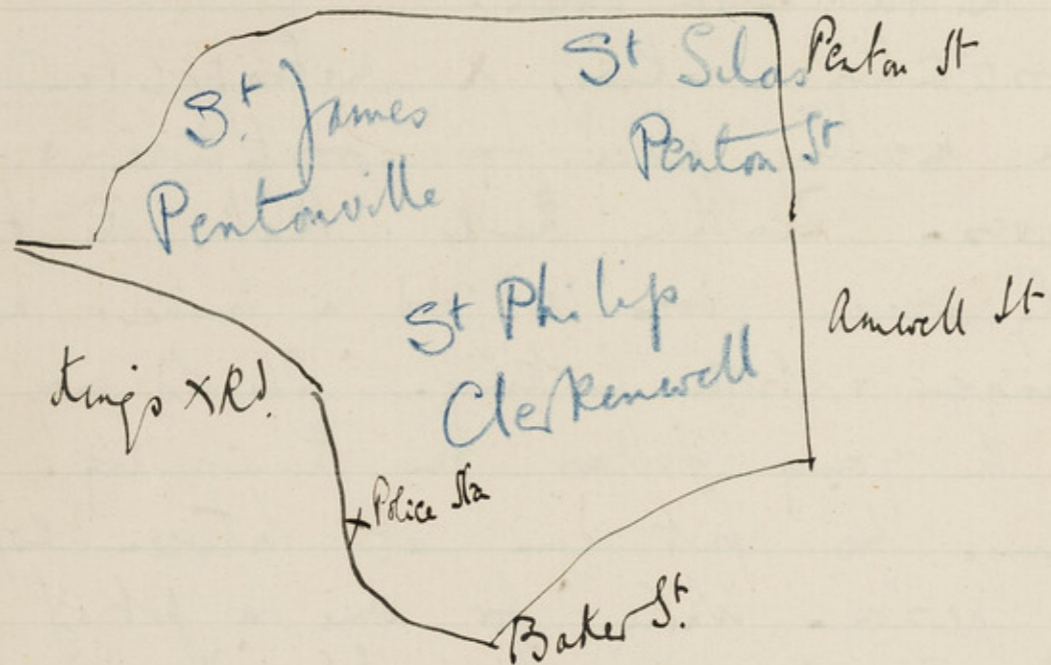 St James
Pentonville
St Silas
Penton St
Penton St
St Philip
Clerkenwell
Amwell St
Kings X Rd.
Police Sta
Baker St.